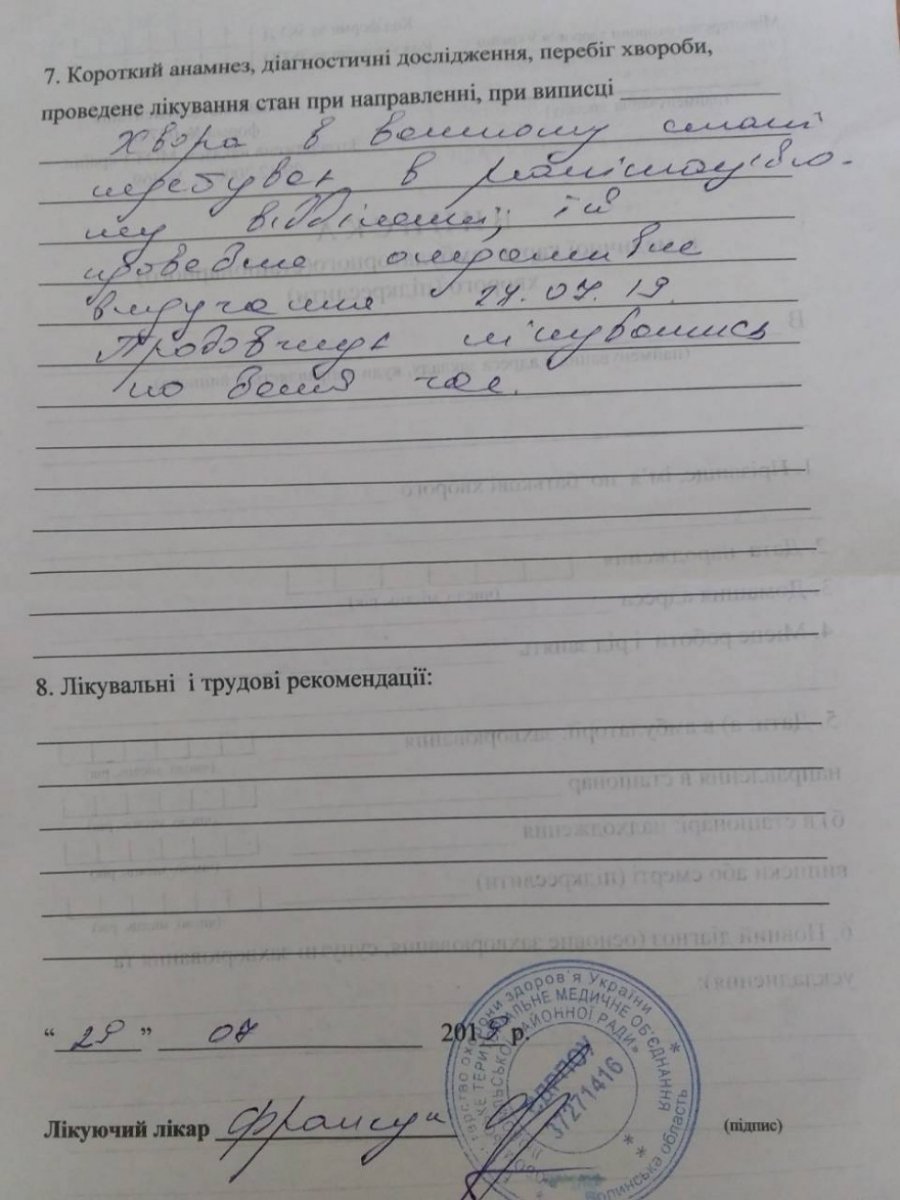 7. Короткий анамнез, діагностичні дослідження, перебіг хвороби,
проведене лікування стан при направленні, при виписці
Хвора в важкому стані
перебуває в реанімаційно-
му відділенні, їй
проведене оперативне
втручання 24.07.19.
Продовжує лікуватись
по даний час.
8. Лікувальні і трудові рекомендації:
“ 29 ” 07 2019 р.
Лікуючий лікар
(підпис)
охорони здоров'я України
ТЕРИТОРІАЛЬНЕ МЕДИЧНЕ ОБ'ЄДНАННЯ
РАЙОННОЇ РАДИ»
ЄДРПОУ
37271416
Волинська область